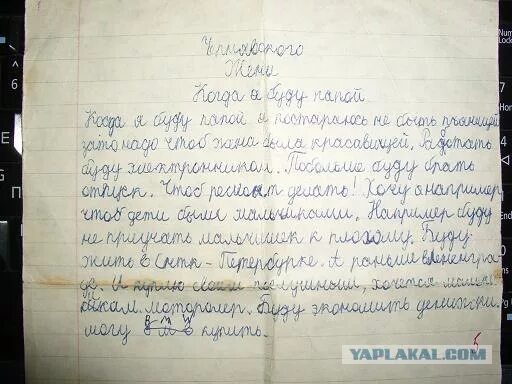 Чернявского
Жени
Когда я буду папой.
Когда я буду папой я постараюсь не быть пьяницей
зато надо чтоб жена была красавицей. Работать
буду электронником. Побольше буду брать
отпуск. Чтоб ремонт делать! Хочу я например,
чтоб дети были мальчиками. Например буду
не приучать мальчишек к плохому. Буду
жить в Санкт-Петербурке. А раньше в Ленингра-
де. И куплю своим послушным, хочется мальчи-
кам мотороллер. Буду экономить денюжки.
могу купить.
5
YAPLAKAL.COM